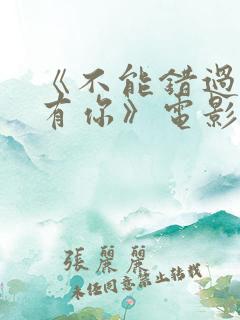 《不能错過
有你》電影
張麗麗
未经同意禁止转载